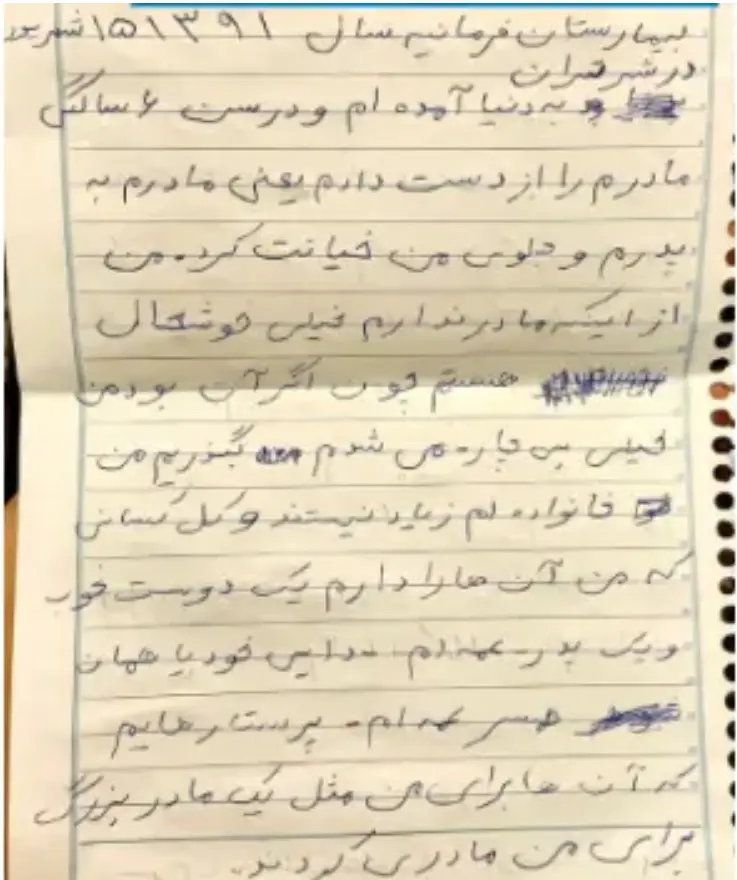 بیمارستان فرمانیه سال ۱۳۹۱ ۱۵ شهریور
در شهر تهران
به دنیا آمده ام و درست ۶ سالگی
مادرم را از دست دادم یعنی مادرم به
پدرم و جلوی من خیانت کرد. من
از اینکه مادر ندارم خیلی خوشحال
هستم چون اگر آن بود من
خیلی بی چاره می شدم بگذریم من
خانواده ام زیاد نیستند و کل کسانی
که من آن ها را دارم یک دوست خوب
و یک پدر - عمه ام - دایی خود یا همان
همسر عمه ام - پرستارهایم
که آن ها برای من مثل یک مادر بزرگ
برای من مادری کردند.